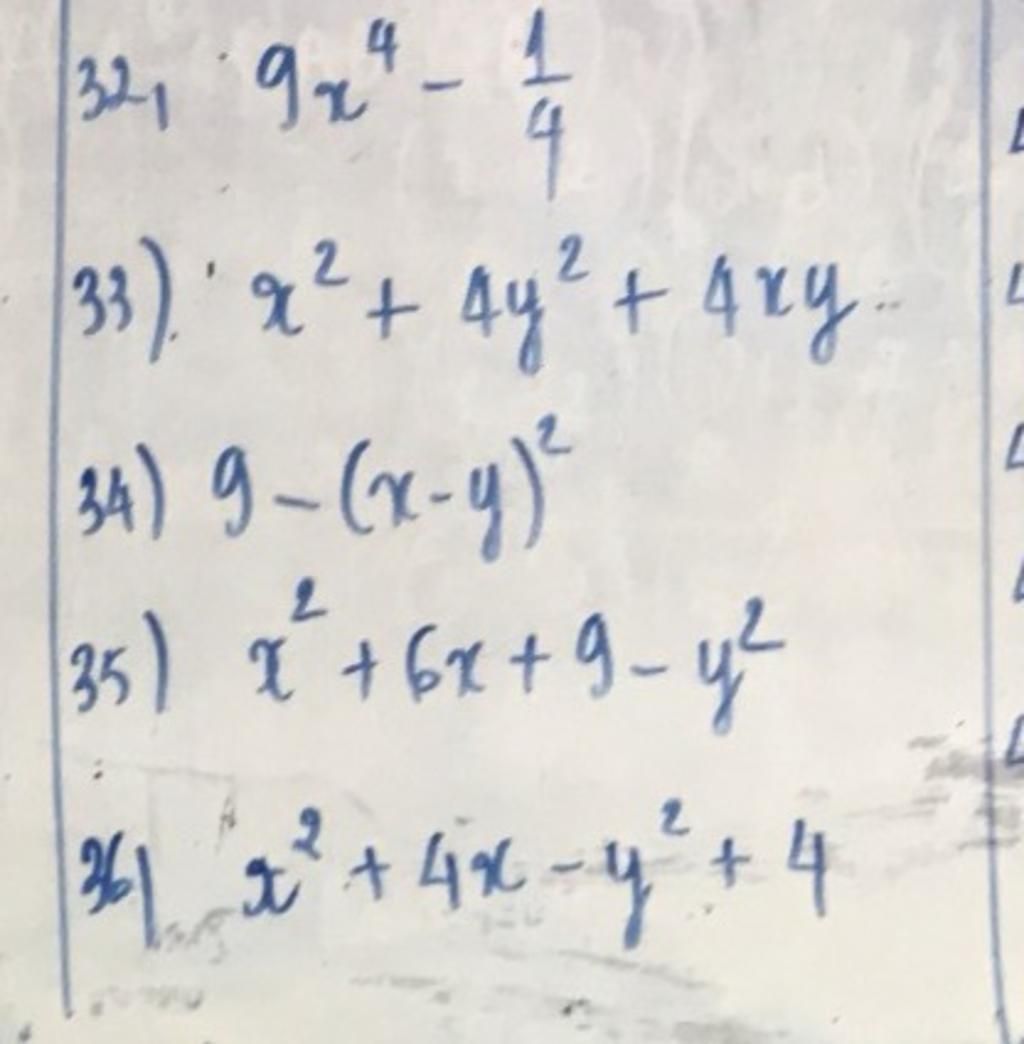 32, 9x⁴ - 1/4
33) x² + 4y² + 4xy
34) 9 - (x-y)²
35) x² + 6x + 9 - y²
36) x² + 4x - y² + 4